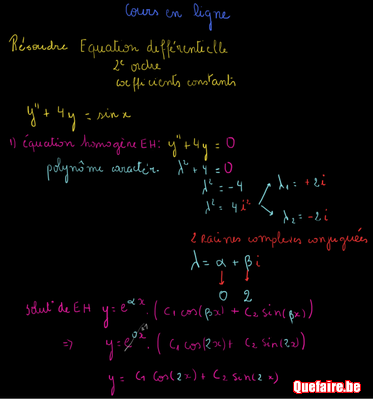 Cours en ligne
Résoudre Equation différentielle
2e ordre
coefficients constants
y" + 4y = sin x
1) équation homogène EH: y" + 4y = 0
polynôme caractér. λ² + 4 = 0
λ² = -4
λ² = 4i²
λ1 = +2i
λ2 = -2i
2 Racines complexes conjuguées
λ = α + βi
0 2
solut° de EH y = e^αx . (C1 cos(βx) + C2 sin(βx))
⇒ y = e^0x . (C1 cos(2x) + C2 sin(2x))
y = C1 cos(2x) + C2 sin(2x)
Quefaire.be